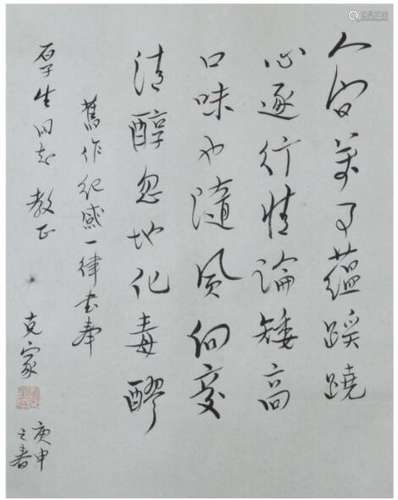 人间万事蕴蹊跷
心逐行情论矮高
口味也随风向变
清醇忽地化毒醪
旧作纪感一律书奉
厚生同志教正
克家
庚申
之春